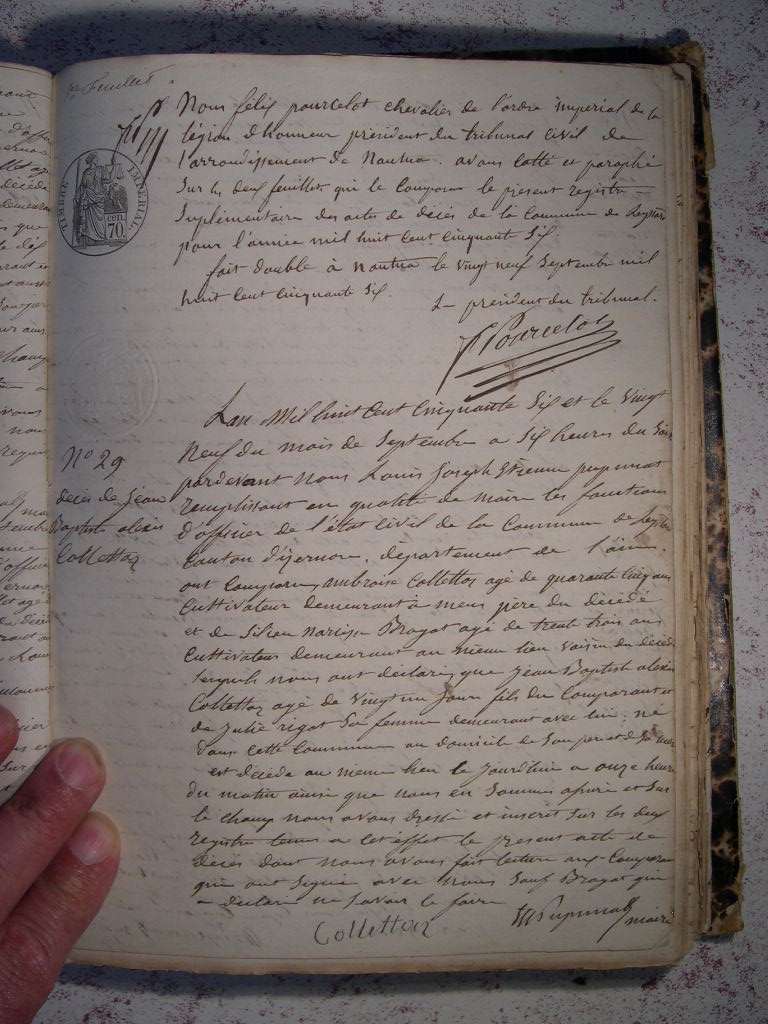 1er feuillet
Nous félix pourcelot chevalier de l'ordre imperial de la
légion d'honneur président du tribunal civil de
l'arrondissement de Nantua. avons cotté et paraphé
sur les deux feuilles qui le composent le present registre
suplémentaire des actes de décés de la commune de
pour l'année mil huit cent cinquante six.
fait double à nantua le vingt neuf septembre mil
huit cent cinquante six.
Le president du tribunal.
Pourcelot
TIMBRE IMPERIAL
70 cen.
Lan Mil huit cent cinquante six et le vingt
neuf du mois de septembre a six heures du soir
pardevant nous Louis Joseph Etienne pupunat
remplissant en qualité de maire les fonctions
d'officier de l'état civil de la commune de
Canton d'izernore, département de l'ain.
ont comparu ambroise Collettaz agé de quarante cinq ans
cultivateur demeurant a mens père du décédé
et de Silien narcisse Brogat agé de trente trois ans
cultivateur demeurant au meme lieu voisin du décédé
lesquels nous ont déclaré que jean Baptiste alexis
Collettaz agé de vingt un jour fils du comparant et
de julie rigot sa femme demeurant avec lui; né
dans cette commune au domicile de son pere et de sa mere
est décédé au meme lieu le jourdhui a onze heures
du matin ainsi que nous en sommes assuré et sur
le champ nous avons dressé et inscrit sur les deux
registre tenus a cet effet le present acte de
décés dont nous avons fait lecture aux comparant
qui ont signé avec nous sauf Brogat qui
a déclaré ne savoir le faire
Collettaz
Pupunat maire
N° 29
décés de jean
Baptiste alexis
Collettaz